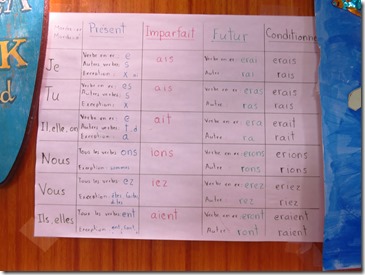 K
d
Présent Imparfait Futur Conditionne
Je Verbe en er: e ais Verbe en er: erai erais
Autres verbes: s Autre rai rais
Exception: x
Tu Verbe en er: es ais Verbe en er: eras erais
Autres verbes: s Autre: ras rais
Exception: x
Il, elle, on Verbe en er: e ait Verbe en er: era erait
Autres verbes: t, d Autre: ra rait
Exception: a
Nous Tous les verbes: ons ions Verbe en er: erons erions
Exception: sommes Autre: rons rions
Vous Tous les verbes: ez iez Verbe en er: erez eriez
Exception: êtes faites Autre: rez riez
dites
Ils, elles Tous les verbes: ent aient Verbe en er: eront eraient
Exception: ont, sont, Autre: ront raient